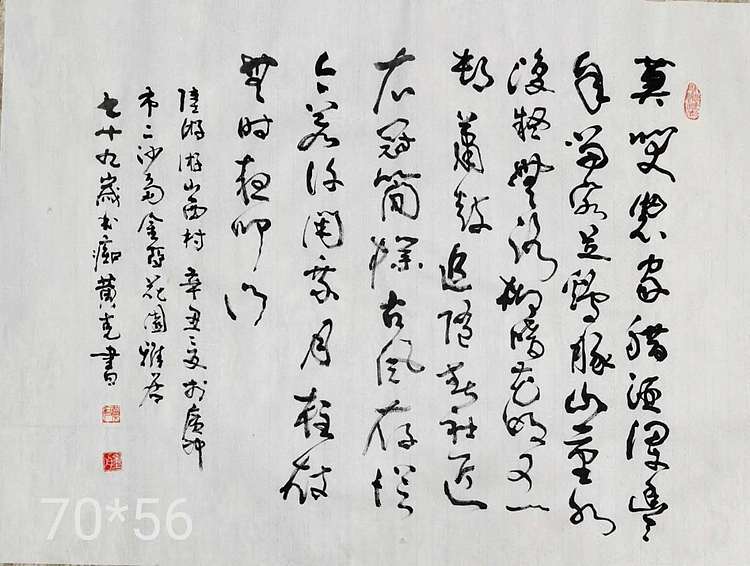 莫笑農家臘酒渾豐
年留客足雞豚山重水
複疑無路柳暗花明又一
村蕭鼓追隨春社近
衣冠簡樸古風存從
今若許閑乘月拄杖
無時夜叩門
陸游游山西村辛丑之夏於廣州
市二沙島金亞花園雅居
七十九歲書痴黃克書
70*56